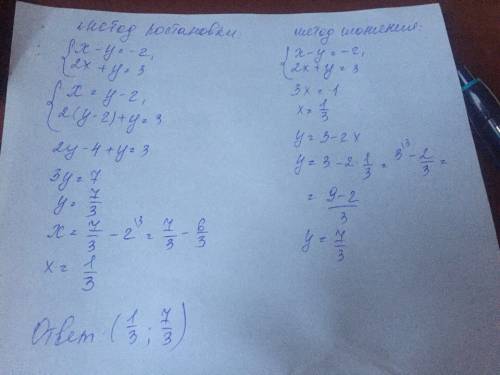 метод постановки:
{x-y=-2,
2x+y=3
{x=y-2,
2(y-2)+y=3
2y-4+y=3
3y=7
y=7/3
x=7/3-2^{\3}=7/3-6/3
x=1/3
Ответ: (1/3; 7/3)
метод сложения:
{x-y=-2,
2x+y=3
3x=1
x=1/3
y=3-2x
y=3-2·1/3=3^{\3}-2/3=
=9-2/3
y=7/3